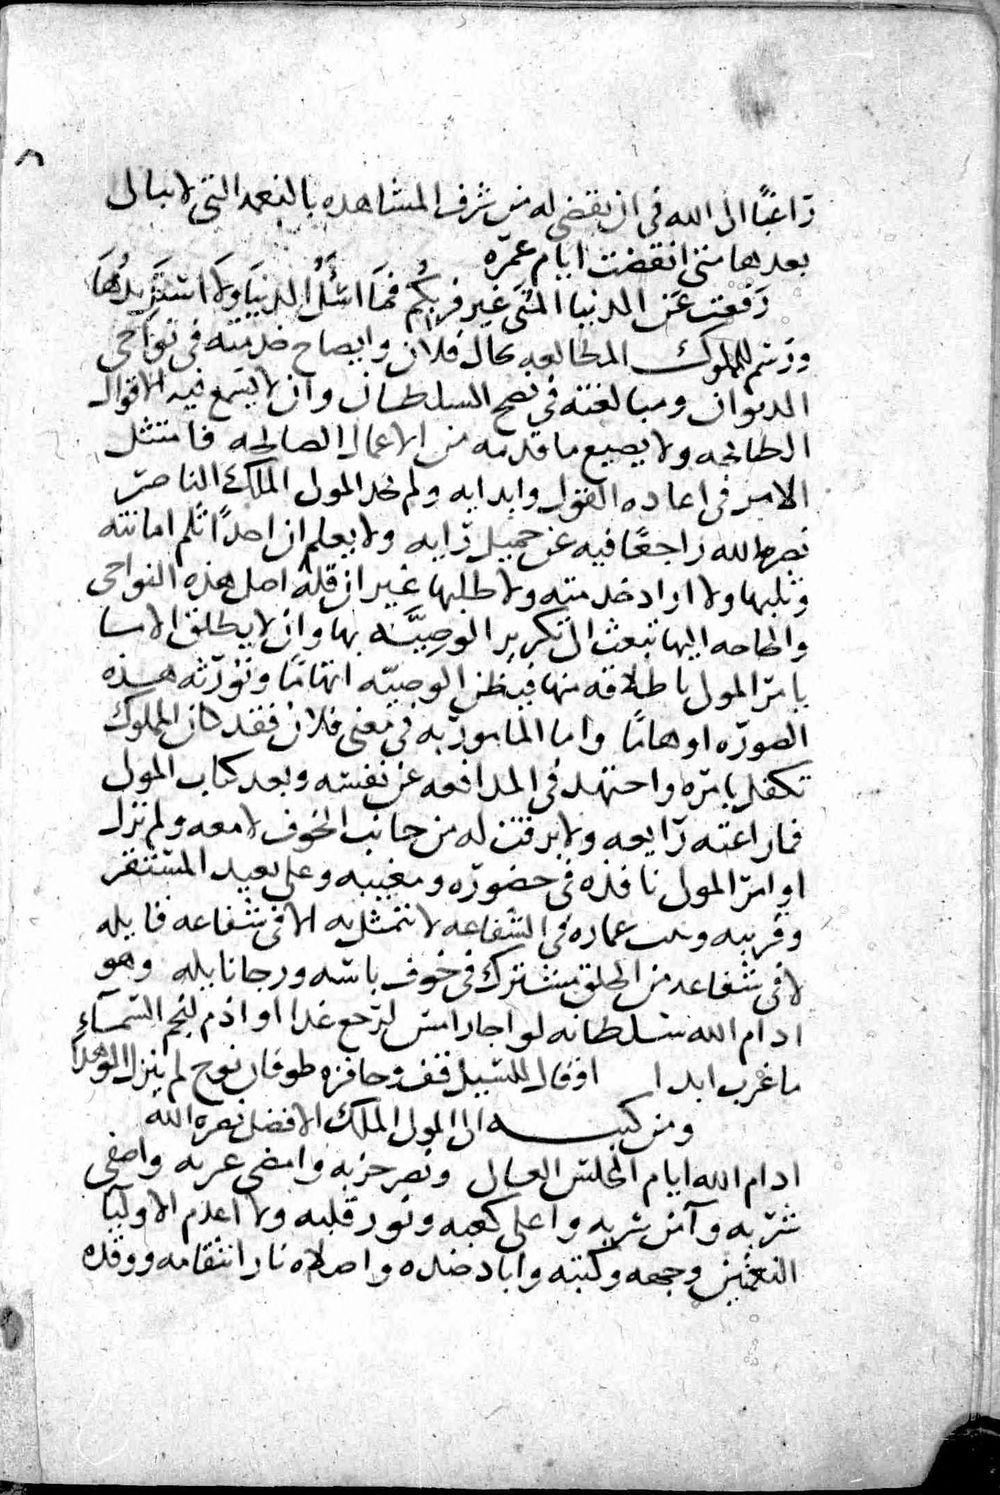 ٨
راغبًا الى الله فى ان يقضى له من شرف المشاهده بالنعمه التى لا يبالى
بعدها متى انقضت ايام عمره
رَفعت عَن الدنيا المُنَى غير قربكُم فمَا اسْئَلُ الدنيَا وَلَا اسْتَزِيدُهَا
ورسم للمملوك المطالعه بحال فلان وايضاح خدمته فى نواحى
الديوان ومبالغته فى نصح السلطان وان لا يسمع فيه الاقوال
الطالحه ولا يضيع ما قدمه من الاعمال الصالحه فامتثل
الامر فى اعاده القول وابدايه ولم يجد المولى الملك الناصر
نصره الله راجعًا فيه عن جميل رايه ولا يعلم ان احدًا ثلم امانته
وثلبها ولا اراد خدمته ولا طلبها غير ان قلة اصل هذه النواحى
والحاجه اليها تبعث الى تكرير الوصيَّه بها وان لا يطلق الا ما
يامر المولى باطلاقه منها فيظن الوصيّه اتهامًا وتورثه هذه
الصوره اوهامًا واما المامور به فى معنى فلان فقد كان المملوك
تكفل بامره واجتهد فى المدافعه عن نفسه وبعد كتاب المولى
فما راعته رايعه ولا برقت له من جانب الخوف لامعه ولم تزل
اوامر المولى نافذه فى حضوره ومغيبه وعلى بعيد المستقر
وقريبه وبيت عماره فى الشفاعه لا نتمثل به الا فى شفاعه قايله
لا فى شفاعه من الخلق مشترك فى خوف باسه ورجا نايله وهو
ادام الله سلطانه لو اجار امس لرجع غدا او اذم لنجم السماءِ
ما غرب ابدا او قال للسيل قف وحافزه طوفان نوح لم ينزل الوهدا
ومن كتبه الى المولى الملك الافضل نصره الله
ادام الله ايام المجلس العالى ونصر حزبه وامضى غربه واصفى
شربه وآمن سربه واعلى كعبه ونور قلبه ولا اعدم الاوليا
النعمتين وجهه وكتبه واباد ضده واصلاه نار انتقامه ووقده